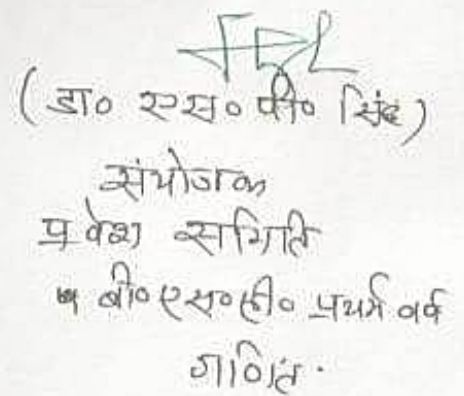 (डा० एस० पी० सिंह)
संयोजक
प्रवेश समिति
बी०एस०सी० प्रथम वर्ष
गणित.